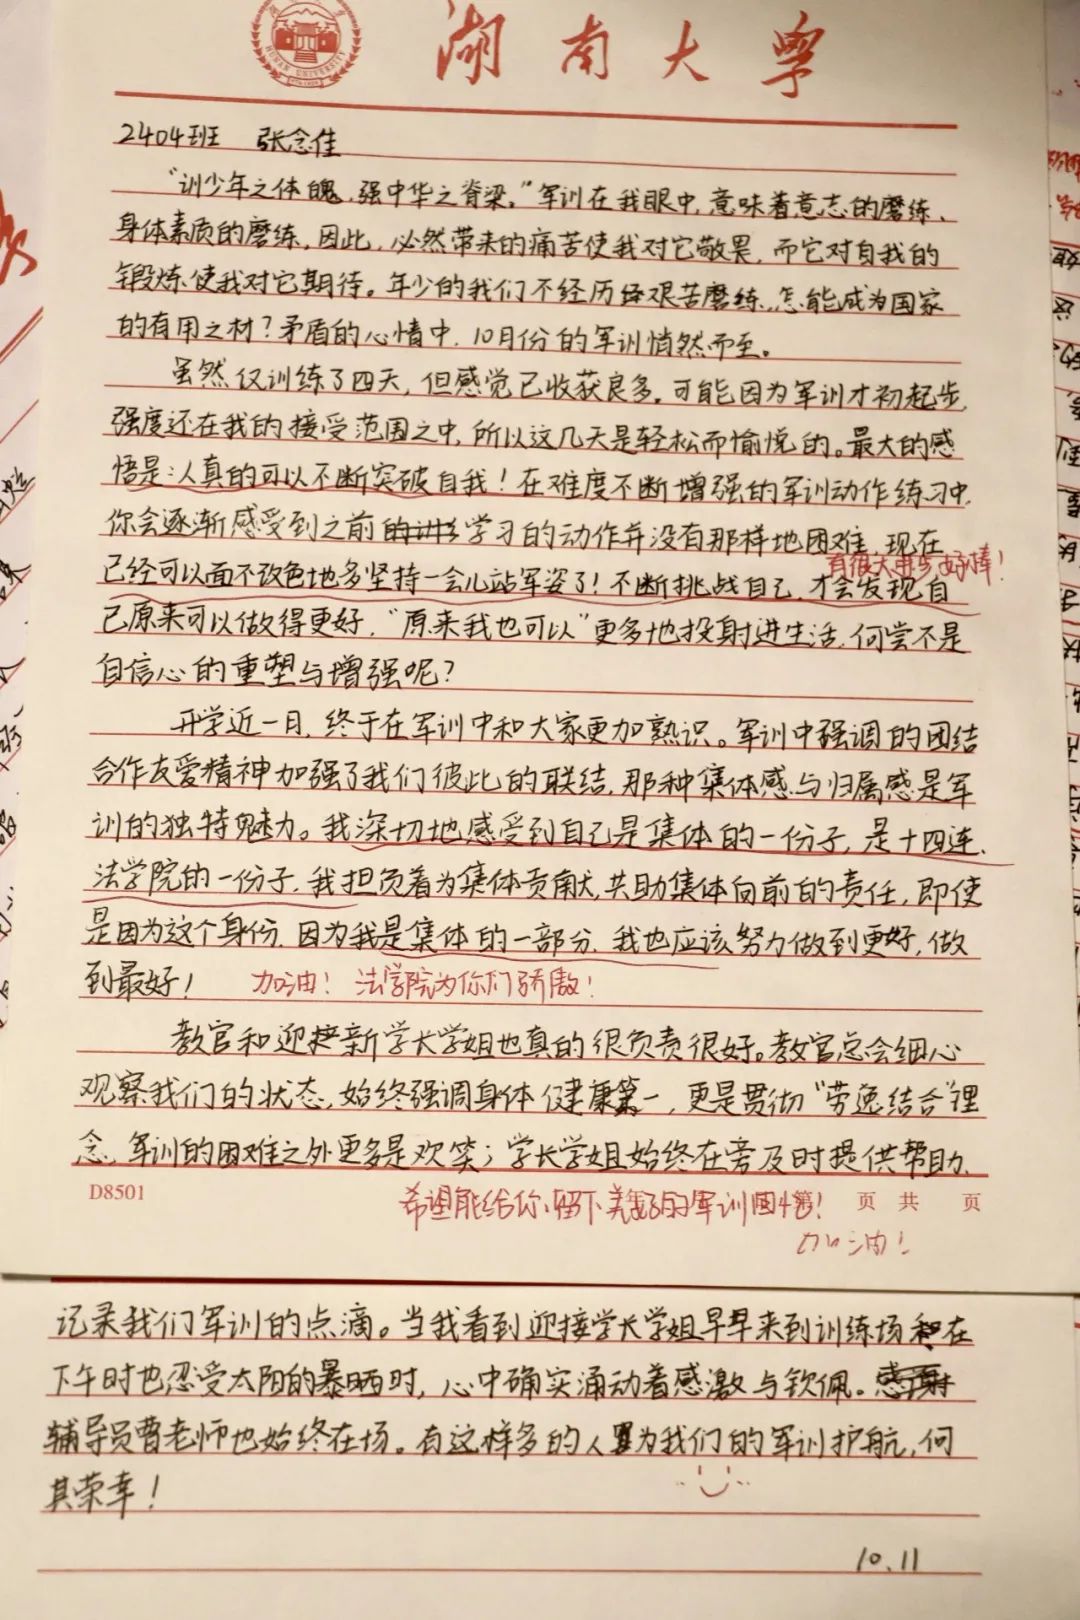 HUNAN UNIVERSITY
湖南大学
2404班 张念佳
“训少年之体魄，强中华之脊梁。”军训在我眼中，意味着意志的磨练、
身体素质的磨练，因此，必然带来的痛苦使我对它敬畏，而它对自我的
锻炼使我对它期待。年少的我们不经历经艰苦磨练，怎能成为国家
的有用之材？矛盾的心情中，10月份的军训悄然而至。
虽然仅训练了四天，但感觉已收获良多。可能因为军训才初起步，
强度还在我的接受范围之中，所以这几天是轻松而愉悦的。最大的感
悟是：人真的可以不断突破自我！在难度不断增强的军训动作练习中，
你会逐渐感受到之前学习的动作并没有那样地困难，现在
有很大进步，好棒！
已经可以面不改色地多坚持一会儿站军姿了！不断挑战自己，才会发现自
己原来可以做得更好，“原来我也可以”更多地投射进生活，何尝不是
自信心的重塑与增强呢？
开学近一月，终于在军训中和大家更加熟识。军训中强调的团结
合作友爱精神加强了我们彼此的联结，那种集体感与归属感是军
训的独特魅力。我深切地感受到自己是集体的一份子，是十四连、
法学院的一份子，我担负着为集体贡献，共助集体向前的责任，即使
是因为这个身份，因为我是集体的一部分，我也应该努力做到更好，做
到最好！ 加油！法学院为你们骄傲！
教官和迎新学长学姐也真的很负责很好。教官总会细心
观察我们的状态，始终强调身体健康第一，更是贯彻“劳逸结合”理
念，军训的困难之外更多是欢笑；学长学姐始终在旁及时提供帮助、
D8501 第 页 共 页
希望能给你留下美好的军训回忆！
加油！
记录我们军训的点滴。当我看到迎接学长学姐早早来到训练场和在
下午时也忍受太阳的暴晒时，心中确实涌动着感激与钦佩。
辅导员曹老师也始终在场。有这样多的人为我们的军训护航，何
其荣幸！
10.11